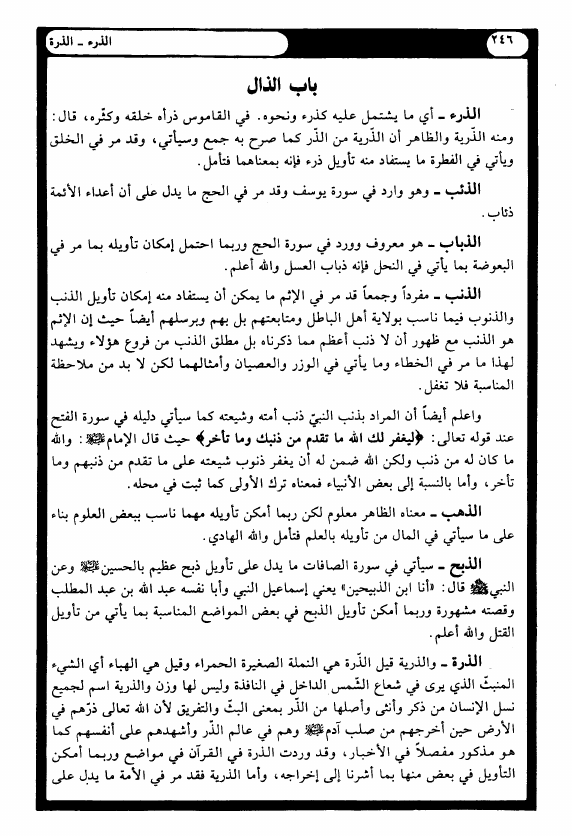 ٢٤٦
الذرء ــ الذرة
باب الذال
الذرء ــ أي ما يشتمل عليه كذرء ونحوه. في القاموس ذرأه خلقه وكثّره، قال:
ومنه الذّرية والظاهر أن الذّرية من الذّر كما صرح به جمع وسيأتي، وقد مر في الخلق
ويأتي في الفطرة ما يستفاد منه تأويل ذرء فإنه بمعناهما فتأمل.
الذئب ــ وهو وارد في سورة يوسف وقد مر في الحج ما يدل على أن أعداء الأئمة
ذئاب.
الذباب ــ هو معروف وورد في سورة الحج وربما احتمل إمكان تأويله بما مر في
البعوضة بما يأتي في النحل فإنه ذباب العسل والله أعلم.
الذنب ــ مفرداً وجمعاً قد مر في الإثم ما يمكن أن يستفاد منه إمكان تأويل الذنب
والذنوب فيما ناسب بولاية أهل الباطل ومتابعتهم بل بهم وبرسلهم أيضاً حيث إن الإثم
هو الذنب مع ظهور أن لا ذنب أعظم مما ذكرناه بل مطلق الذنب من فروع هؤلاء ويشهد
لهذا ما مر في الخطاء وما يأتي في الوزر والعصيان وأمثالهما لكن لا بد من ملاحظة
المناسبة فلا تغفل.
واعلم أيضاً أن المراد بذنب النبيّ ذنب أمته وشيعته كما سيأتي دليله في سورة الفتح
عند قوله تعالى: ﴿ليغفر لك الله ما تقدم من ذنبك وما تأخر﴾ حيث قال الإمام: والله
ما كان له من ذنب ولكن الله ضمن له أن يغفر ذنوب شيعته على ما تقدم من ذنبهم وما
تأخر، وأما بالنسبة إلى بعض الأنبياء فمعناه ترك الأولى كما ثبت في محله.
الذهب ــ معناه الظاهر معلوم لكن ربما أمكن تأويله مهما ناسب ببعض العلوم بناء
على ما سيأتي في المال من تأويله بالعلم فتأمل والله الهادي.
الذبح ــ سيأتي في سورة الصافات ما يدل على تأويل ذبح عظيم بالحسين وعن
النبيﷺ قال: «أنا ابن الذبيحين» يعني إسماعيل النبي وأبا نفسه عبد الله بن عبد المطلب
وقصته مشهورة وربما أمكن تأويل الذبح في بعض المواضع المناسبة بما يأتي من تأويل
القتل والله أعلم.
الذرة ــ والذرية قيل الذّرة هي النملة الصغيرة الحمراء وقيل هي الهباء أي الشيء
المنبثّ الذي يرى في شعاع الشّمس الداخل في النافذة وليس لها وزن والذرية اسم لجميع
نسل الإنسان من ذكر وأنثى وأصلها من الذّر بمعنى البثّ والتفريق لأن الله تعالى ذرّهم في
الأرض حين أخرجهم من صلب آدم وهم في عالم الذّر وأشهدهم على أنفسهم كما
هو مذكور مفصلاً في الأخبار، وقد وردت الذرة في القرآن في مواضع وربما أمكن
التأويل في بعض منها بما أشرنا إلى إخراجه، وأما الذرية فقد مر في الأمة ما يدل على